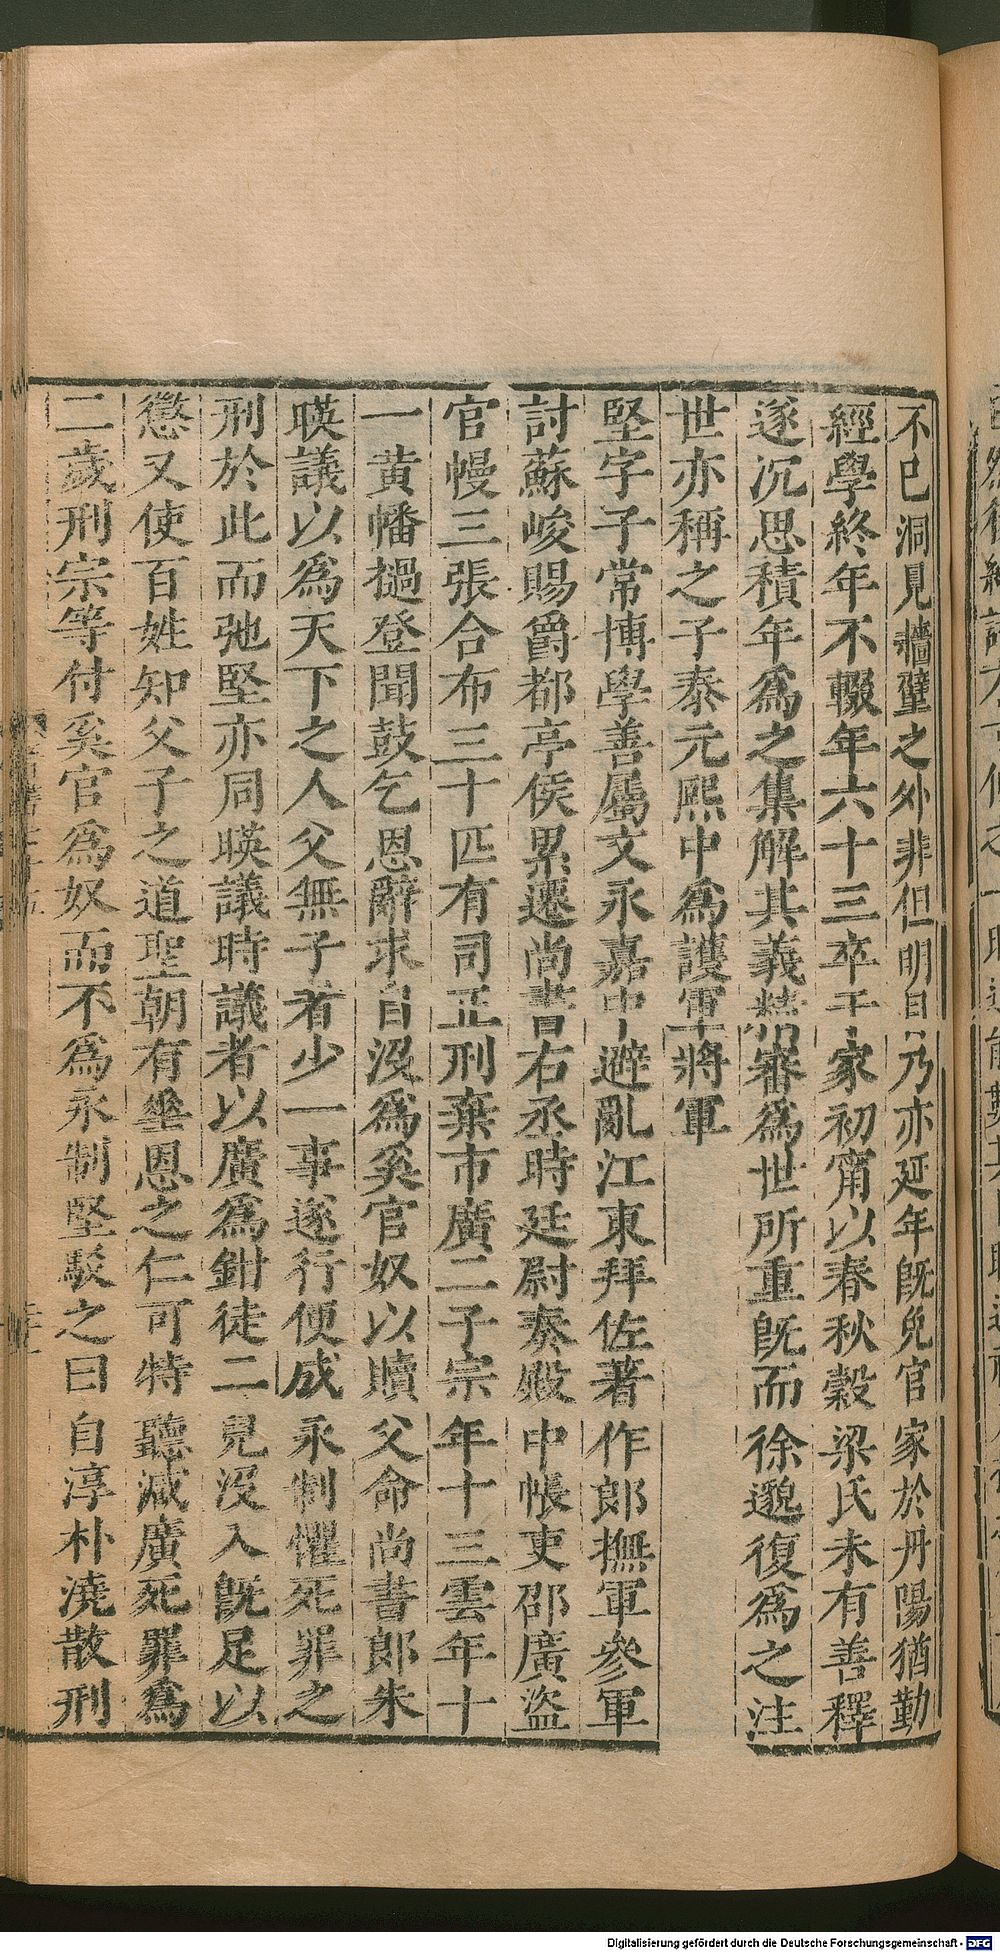 不已洞見牆壁之外非但明目乃亦延年旣免官家於丹陽猶勤
經學終年不輟年六十三卒于家初甯以春秋榖梁氏未有善釋
遂沉思積年爲之集解其義精審爲世所重旣而徐邈復爲之注
世亦稱之子泰元熙中爲護軍將軍
堅字子常博學善屬文永嘉中避亂江東拜佐著作郎撫軍參軍
討蘇峻賜爵都亭侯累遷尚書右丞時廷尉奏殿中帳吏邵廣盜
官幔三張合布三十匹有司正刑棄市廣二子宗年十三雲年十
一黃幡撾登聞鼓乞恩辭求自沒爲奚官奴以贖父命尚書郎朱
暎議以爲天下之人父無子者少一事遂行便成永制懼死罪之
刑於此而弛堅亦同暎議時議者以廣爲鉗徒二兒沒入旣足以
懲又使百姓知父子之道聖朝有垂恩之仁可特聽減廣死罪爲
二歲刑宗等付奚官爲奴而不爲永制堅駁之曰自淳朴澆散刑
Digitalisierung gefördert durch die Deutsche Forschungsgemeinschaft - DFG